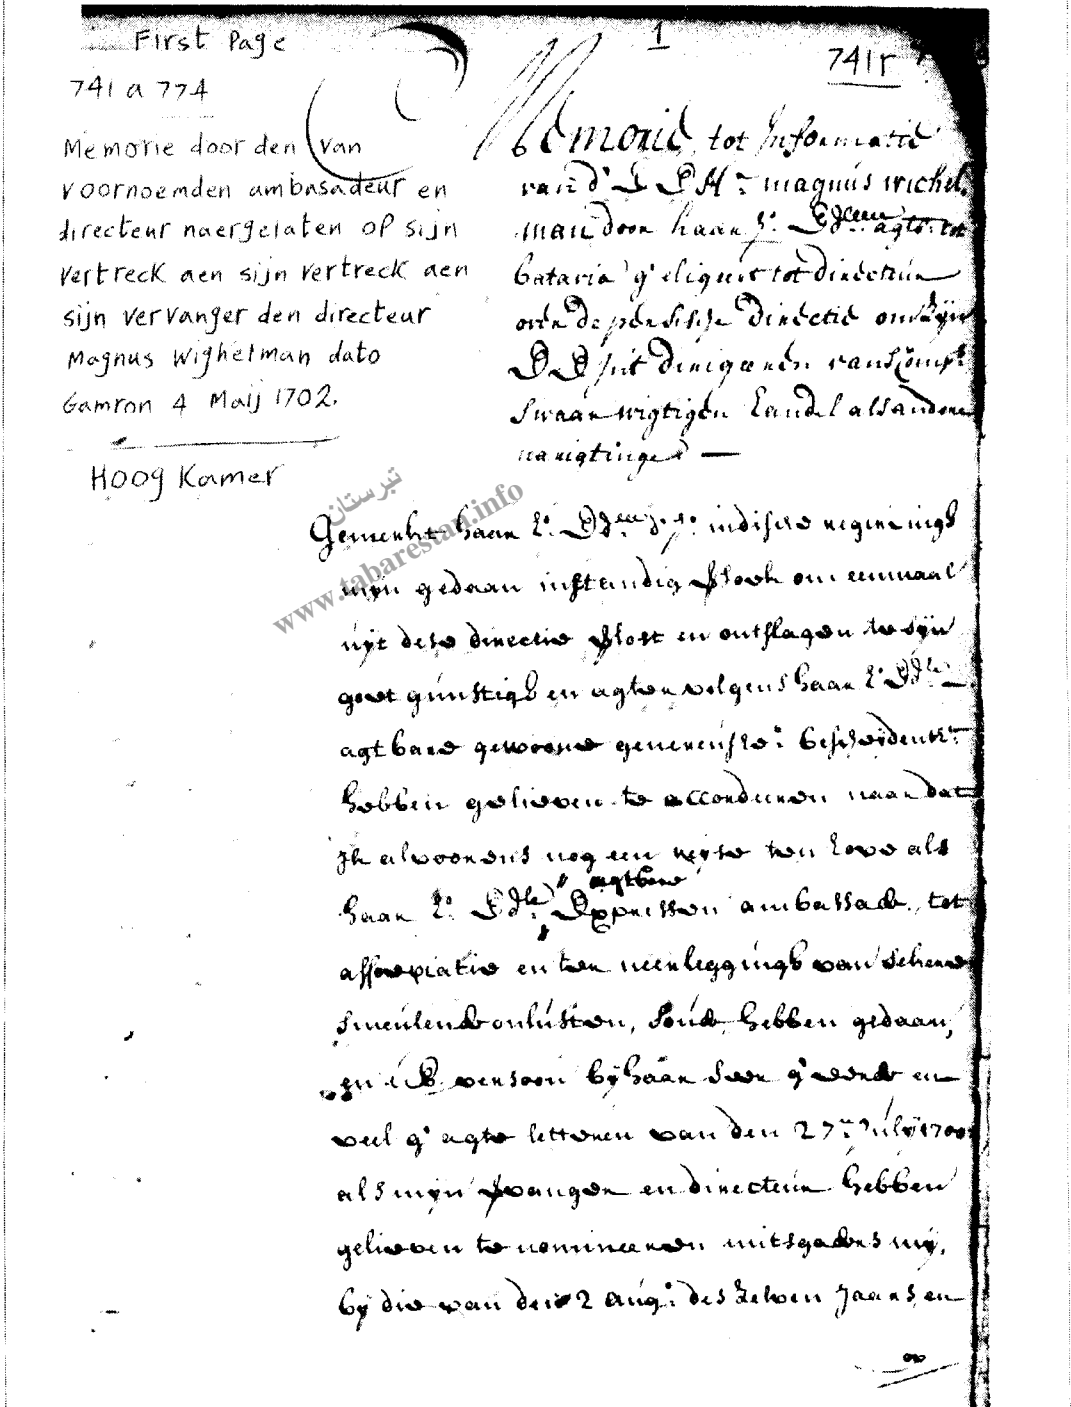 First Page
1
741r
741 a 774
Memorie door den van
voornoemden ambasadeur en
directeur naergelaten op sijn
vertreck aen sijn vertreck aen
sijn vervanger den directeur
Magnus Wighelman dato
Gamron 4 Maij 1702.
Hoog Kamer
Memorie tot Informatie
van d' E E Hr magnus wichel
man door haar Ed agtb tot
batavia g'eligeert tot directeur
over de persische directie omsijn
E E int dirigeeren van Comps
swaarwigtigen handel als andere
narigtinge
تبرستان
www.tabarestan.info
Gemerkt haar indische regeringh
mijn gedaan instandig versoek om eenmaal
uijt dese directie verlost en ontslagen te sijn
goet gunstigh en agter volgens haar
agtbare gewoone genereuse bescheijdenth
hebben gelieven te accordeeren naar dat
ik alvoorens nog een reijse ten hove als
agtbare
haar Expressen ambassade tot
assopiatie en ter neerleggingh van sekere
smeulende onlusten, soude hebben gedaan,
persoon bij haar seer g'eerde en
veel g'agte letteren van den 27n Julij 1700
als mijn vervanger en directeur hebben
gelieven te nomineeren mitsgaders mij,
bij die van den 2 Aug: des selven Jaars, en